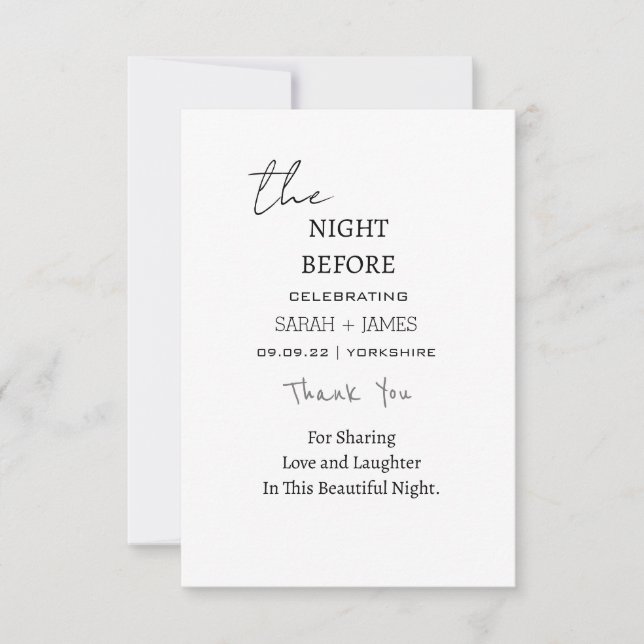 the
NIGHT
BEFORE
CELEBRATING
SARAH + JAMES
09.09.22 | YORKSHIRE
Thank You
For Sharing
Love and Laughter
In This Beautiful Night.